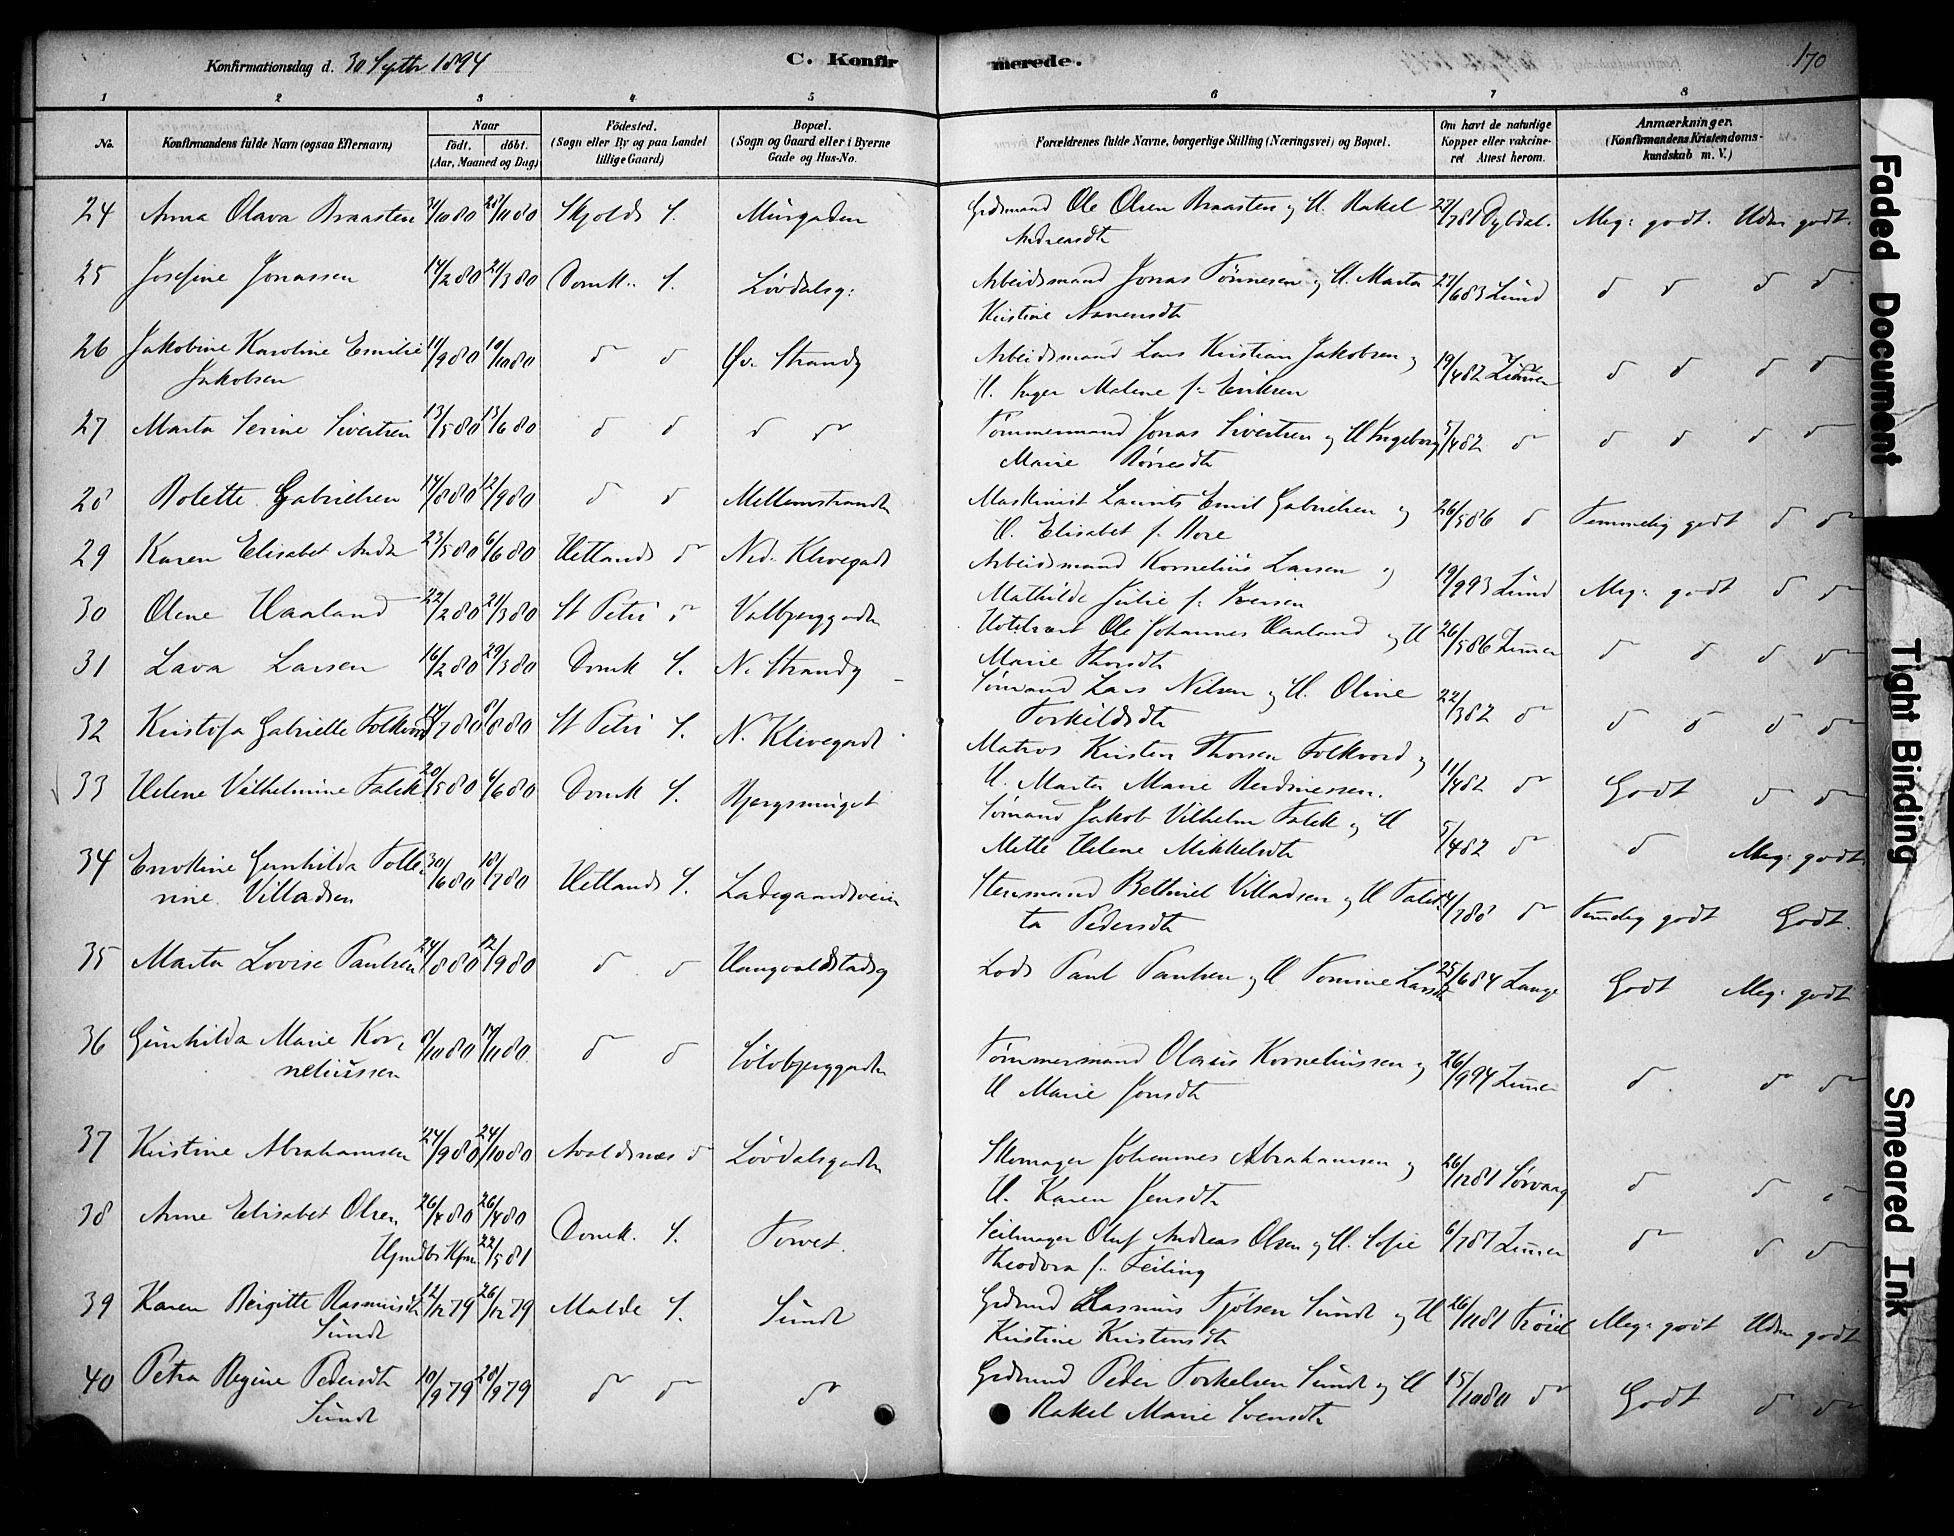 Konfirmationsdag d. 30 Septbr 1894
C. Konfirmerede.
170
1 2 3 4 5 6 7 8
No.
Konfirmandens fulde Navn (ogsaa Efternavn)
Naar
födt. döbt.
(Aar, Maaned og Dag)
Födested.
(Sogn eller By og paa Landet tillige Gaard)
Bopæl.
(Sogn og Gaard eller i Byerne Gade og Hus-No.
Forældrenes fulde Navne, borgerlige Stilling (Næringsvei) og Bopæl.
Om havt de naturlige Kopper eller vakcineret Attest herom.
Anmærkninger.
(Konfirmandens Kristendomskundskab m. V.)
24 Anna Olava Braasten 28/11 80 Skjolds S. Murgaden Grdmand Ole Olsen Braasten og H. Rakel 27/7 81 Dybdal. Meg: godt. Udm godt.
Andreasdtr
25 Josefine Jonassen 14/2 80 21/3 80 Domk. S. Lövdalsg: Arbeidsmand Jonas Tönnesen og H. Marta 27/6 83 Lund d d d d
Kistine Aanensdtr
26 Jakobine Karoline Emilie 19/9 80 10/10 80 d d Øv. Strandg Arbeidsmand Lars Kristian Jakobsen og 19/4 82 Zimmer d d d d
Jakobsen H. Inger Malene f. Eriksen
27 Marta Serine Sivertsen 13/5 80 13/6 80 d d d d Tömmermand Jonas Sivertsen og H Ingeborg 5/4 82 d d d d d
Marie
28 Bolette Gabrielsen 17/8 80 12/9 80 d d Mellemstrandt Maskinist Laurits Emil Gabrielsen og 26/5 86 d Temmelig godt d d
H. Elisabet f. Hore
29 Karen Elisabet Anda 23/5 80 6/6 80 Hetlands d Ned. Klevegadt Arbeidsmand Kornelius Larsen og 19/9 93 Lund Meg: godt d d
Mathilde Julie f. Iversen
30 Olene Haaland 22/2 80 21/3 80 St Petri d Valbjerggadtn Hotelvært Ole Johannes Haaland og H 26/5 86 Zimmer d d d d
Marie Thorsdtr
31 Lava Larsen 16/2 80 29/3 80 Domk S. N. Strandg Sömand Lars Nilsen og H. Oline 22/3 82 d d d d d
Torkildsdtr
32 Kristofa Gabrielle Folkvord 17/7 80 8/8 80 St Petri S. N. Klevegadt Matros Kristen Thorsen Folkvord og 11/4 82 d Godt d d
H. Marta Marie Berdinessen.
33 Helene Vilhelmine Falck 20/5 80 6/6 80 Domk S. Bjergsmuget Sömand Jakob Vilhelm Falck og H 5/4 82 d d Meg: godt
Mette Helene Mikkelsdtr
34 Enokine Gunhilda Tolle- 30/6 80 18/7 80 Hetlands S. Ladegaardsveien Stensmand Bethuel Villadsen og H Talet- d Temlig godt Godt.
nine Villadsen ta Pedersdtr
35 Marta Lovise Paulsen 24/8 80 12/9 80 d d Haugvaldstadsg Lods Paul Paulsen og H Tomine Larsdtr 25/6 84 Lange Godt Meg: godt
36 Gunhilda Marie Kor- 8/10 80 14/11 80 d d Sölvbjerggadtn Tömmermand Olaus Korneliussen og 26/9 94 Zimmer d d d
neliussen H Marie Jonsdtr
37 Kristine Abrahamsen 24/9 80 24/10 80 Avaldsnæs d Lövdalsgadtn Skomager Johannes Abrahamsen og 26/12 81 Sörvaag d d d
H. Karen Jensdtr
38 Anne Elisabet Olsen 26/4 80 26/4 80 Domk. S. Torvet. Seilmager Oluf Andreas Olsen og H. Sofie 6/7 81 Zimmer d d d
Hjmdbt Kfm. 22/5 81 Theodora f. Feiling
39 Karen Birgitte Rasmusdtr 12/12 79 26/12 79 Malde S. Sunde Grdmd Rasmus Fjölsen Sunde og H 16/11 81 Meg: godt Udm godt
Sunde Kristine Kristensdtr
40 Petra Regine Pedersdtr 10/9 79 28/9 79 d d d Grdmd Peder Torkelsen Sunde og H 15/10 80 d Godt d d
Sunde Rakel Marie Svensdtr
Faded Document
Tight Binding
Smeared Ink